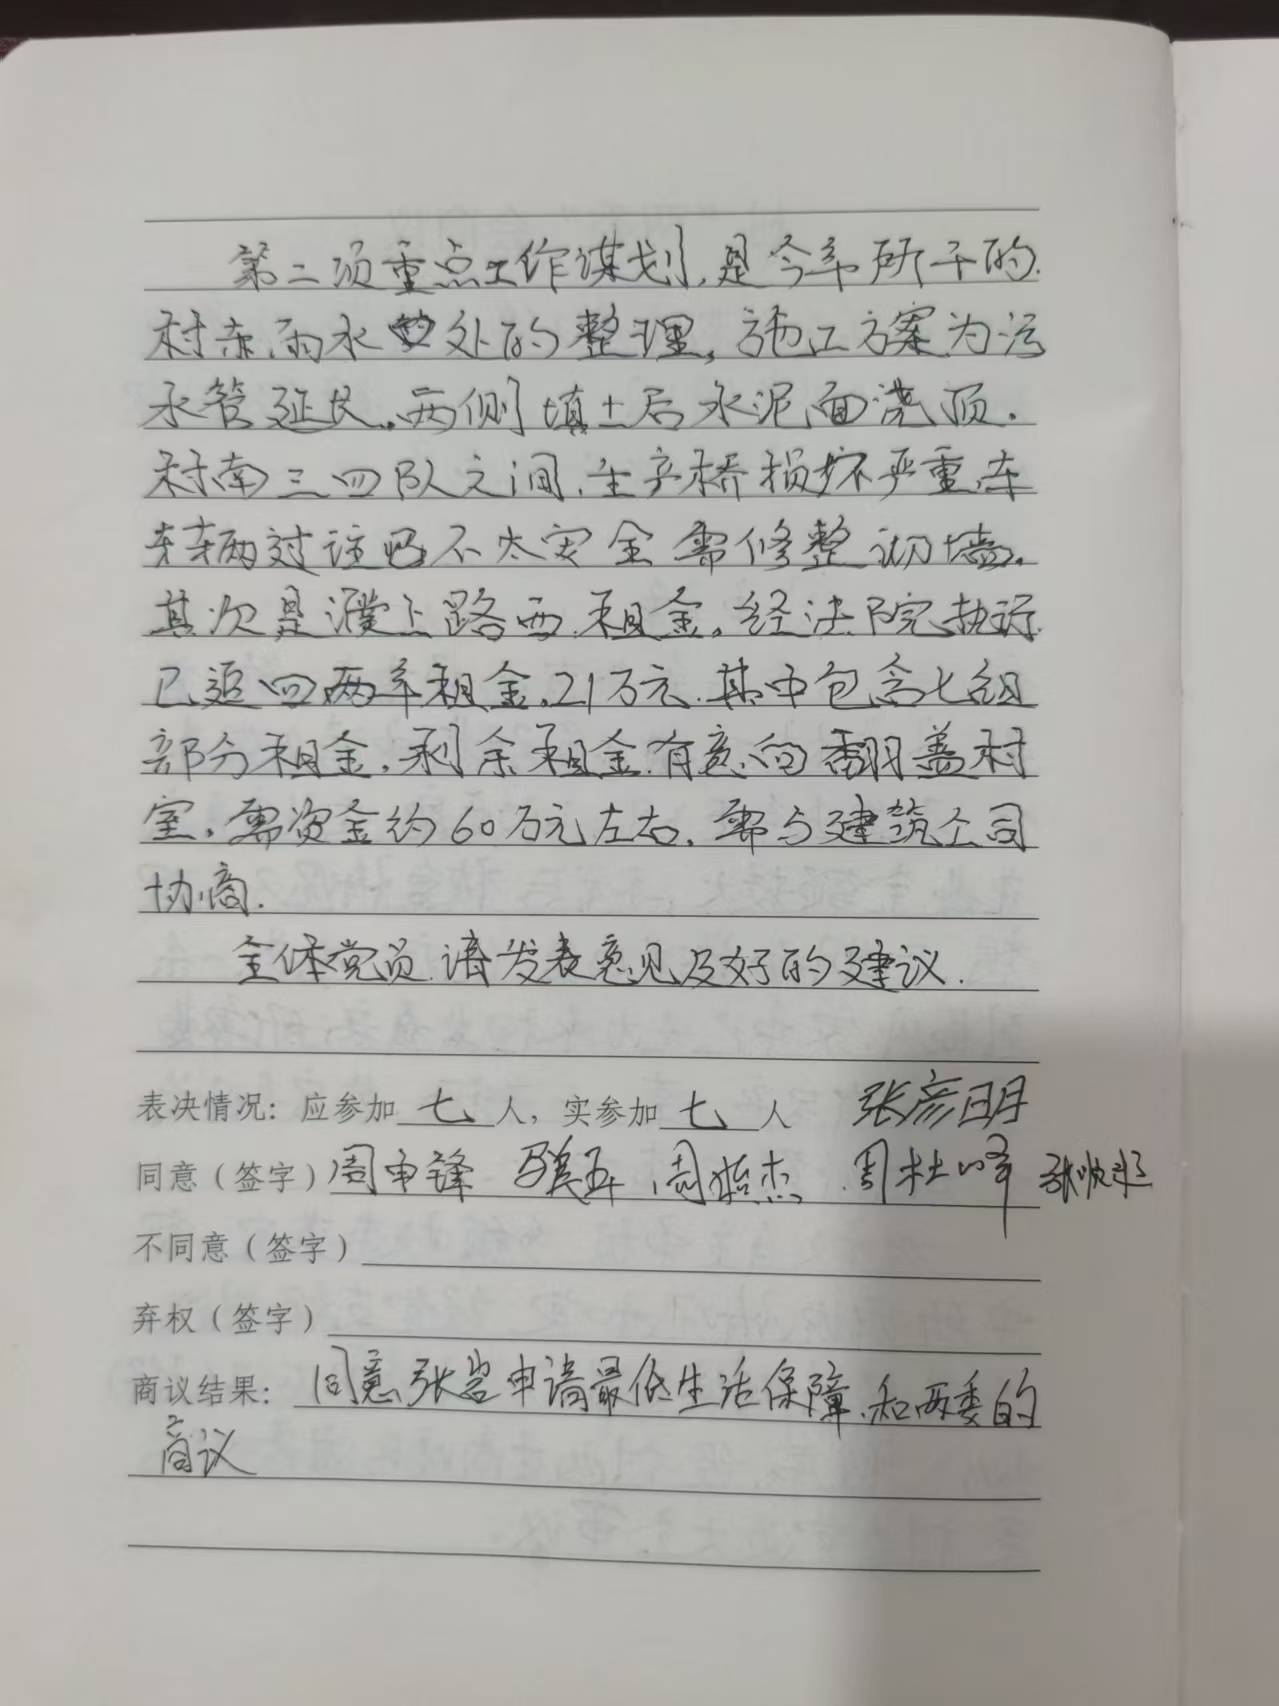 第二项重点工作谋划,是今年所干的.
村东,雨水处的整理,施工方案为污
水管延长.两侧填土后水泥面浇顶.
村南三四队之间,生产桥损坏严重,车
辆过往不太安全需修整砌墙.
其次是濮上路西.租金,经法院执行
已追回两年租金,21万元.其中包含七组
部分租金,剩余租金有意向翻盖村
室,需资金约60万元左右,需与建筑公司
协商.
全体党员请发表意见及好的建议.
表决情况:应参加七人,实参加七人 张彦明
同意(签字)周申锋 周杜峰
不同意(签字)
弃权(签字)
商议结果:同意张岩申请最低生活保障,和两委的
商议